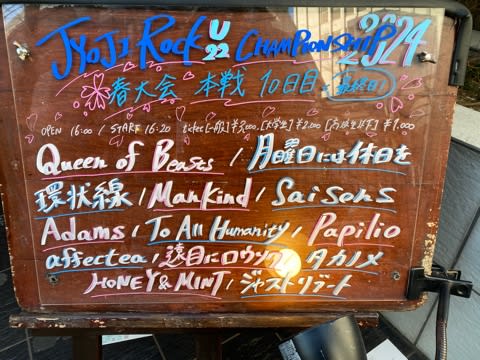 JYOJI ROCK U22 CHAMPIONSHIP 2024
春大会 本戦 10日目 最終日
OPEN 16:00 / START 16:20 ticket [一般] ¥3,000, [大学生] ¥2,000 [高校生以下] ¥1,000
Queen of Benses / 月曜日には休日を
環状線 / Mankind / Saisons
Adams / To All Humanity / Papilio
affectea / 遠目にロウソク / タカノメ
HONEY & MINT / ジャストリブート